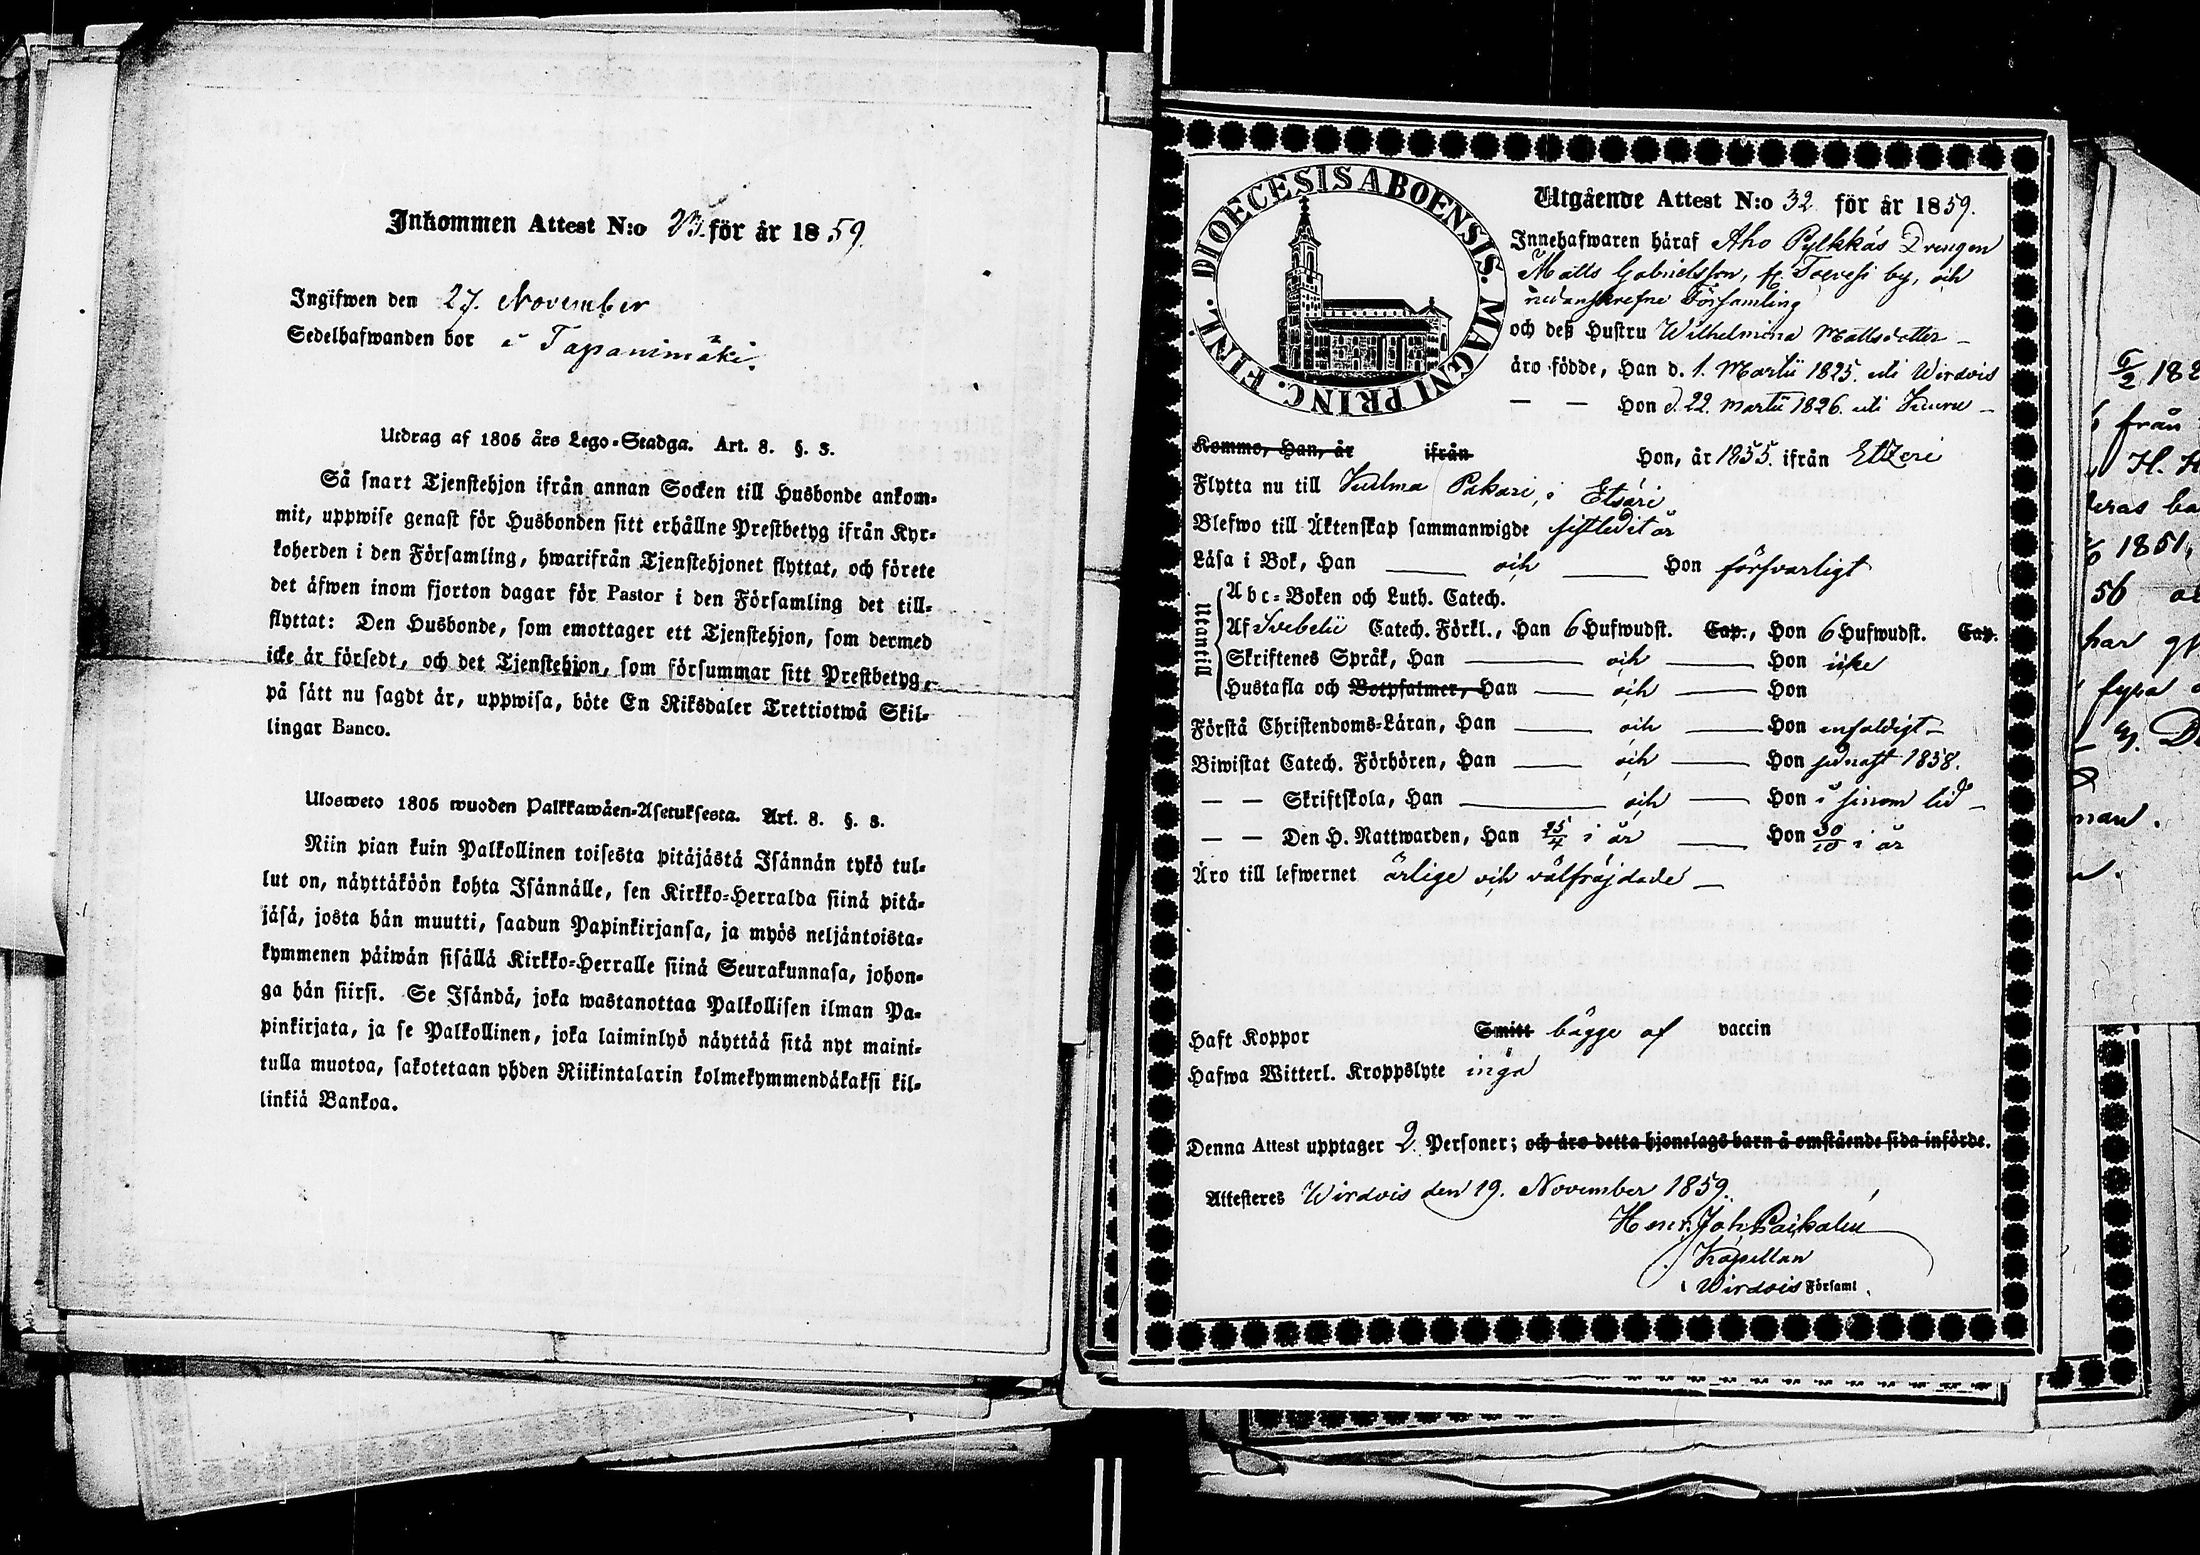 Inkommen Attest N:o 23. för år 1859.
Ingifwen den 27. November
Sedelhafwanden bor i Tapanimäki.
Utdrag af 1805 års Lego-Stadga. Art. 8. §. 3.
Så snart Tjenstehjon ifrån annan Socken till Husbonde ankom-
mit, uppwise genast för Husbonden sitt erhållne Prestbetyg ifrån Kyr-
koherden i den Församling, hwarifrån Tjenstehjonet flyttat, och förete
det äfwen inom fjorton dagar för Pastor i den Församling det till-
flyttat: Den Husbonde, som emottager ett Tjenstehjon, som dermed
icke är försedt, och det Tjenstehjon, som försummar sitt Prestbetyg,
på sätt nu sagdt är, uppwisa, böte En Riksdaler Trettiotwå Skil-
lingar Banco.
Ulosweto 1805 wuoden Palkkawäen-Asetuksesta. Art. 8. §. 3.
Niin pian kuin Palkollinen toisesta pitäjästä Isännän tykö tul-
lut on, näyttäköön kohta Isännälle, sen Kirkko-Herralda siinä pitä-
jäsä, josta hän muutti, saadun Papinkirjansa, ja myös neljäntoista-
kymmenen päiwän sisällä Kirkko-Herralle siinä Seurakunnasa, johon-
ga hän siirsi. Se Isändä, joka wastanottaa Palkollisen ilman Pa-
pinkirjata, ja se Palkollinen, joka laiminlyö näyttää sitä nyt maini-
tulla muotoa, sakotetaan yhden Riikintalarin kolmekymmendäkaksi kil-
linkiä Bankoa.
DIOECESIS ABOENSIS. MAGNI PRINC. FINL.
Utgående Attest N:o 32 för år 1859.
Innehafwaren häraf Aho Pylkkäs Drengen
Matts Gabrielsson, fr. Toevesi by, och
nedanskrefne Församling
och deß Hustru Wilhelmina Mattsdotter
äro födde, Han d. 1. Martii 1825. uti Wirdois
— — Hon d. 22. Martii 1826. uti Keuru
Kommo, Han, år ifrån Hon, år 1855. ifrån Etzeri
Flytta nu till Pakari, i Etsäri
Blefwo till Äktenskap sammanwigde sistledit år
Läsa i Bok, Han — och — Hon försvarligt
Utantill
Abc-Boken och Luth. Catech.
Af Svebelii Catech. Förkl., Han 6 Hufwudst. Cap., Hon 6 Hufwudst. Cap.
Skriftenes Språk, Han — och — Hon icke
Hustafla och Botpsalmer, Han — och — Hon
Förstå Christendoms-Läran, Han — och — Hon enfaldigt
Biwistat Catech. Förhören, Han — och — Hon sednast 1858.
— — Skriftskola, Han — och — Hon i sinom tid
— — Den H. Nattwarden, Han 25/4 i år — Hon 30/10 i år
Äro till lefwernet ärlige och välfräjdade
Haft Koppor Smitt bägge af vaccin
Hafwa Witterl. Kroppslyte inga
Denna Attest upptager 2 Personer; och äro detta hjonelags barn å omstående sida införde.
Attesteres Wirdois den 19. November 1859.
Henr. Joh.
Kapellan
i Wirdois Församl.
6/2 182
från
H. H
1851,
56
har